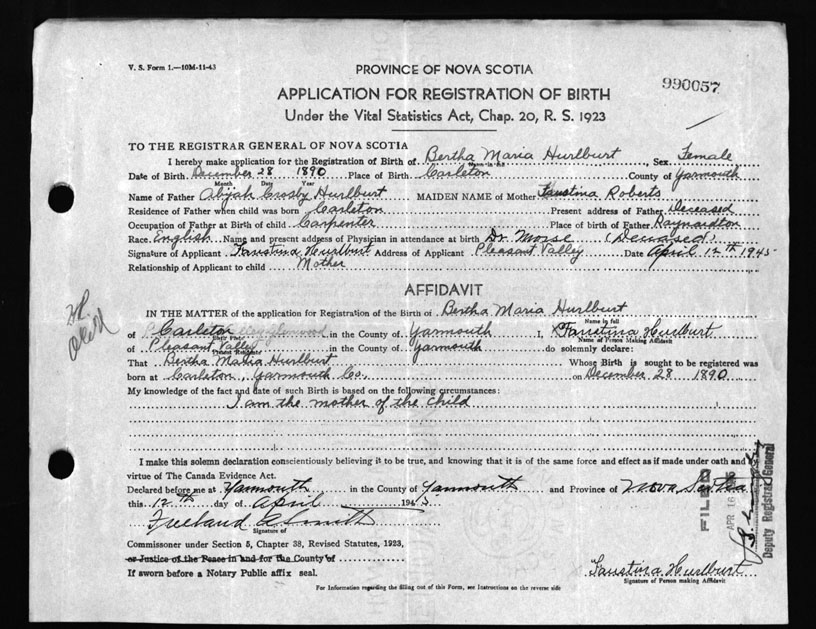 V. S. Form 1.—10M-11-43
990057
PROVINCE OF NOVA SCOTIA
APPLICATION FOR REGISTRATION OF BIRTH
Under the Vital Statistics Act, Chap. 20, R. S. 1923
TO THE REGISTRAR GENERAL OF NOVA SCOTIA
I hereby make application for the Registration of Birth of Bertha Maria Hurlburt, Sex Female
Name in full
Date of Birth December 28 1890 Place of Birth Carleton County of Yarmouth
Month Date Year
Name of Father Abijah Crosby Hurlburt MAIDEN NAME of Mother Faustina Roberts
Residence of Father when child was born Carleton Present address of Father Deceased
Occupation of Father at Birth of child Carpenter Place of birth of Father Raynardton
Race English Name and present address of Physician in attendance at birth Dr. Morse (Deceased)
Signature of Applicant Faustina Hurlburt Address of Applicant Pleasant Valley Date April 12th 1945
Relationship of Applicant to child Mother
AFFIDAVIT
IN THE MATTER of the application for Registration of the Birth of Bertha Maria Hurlburt
Name in full
of Carleton in the County of Yarmouth I, Faustina Hurlburt
Birth Place Name of Person Making Affidavit
of Pleasant Valley in the County of Yarmouth do solemnly declare:
Present Residence
That Bertha Maria Hurlburt Whose Birth is sought to be registered was
born at Carleton, Yarmouth Co. on December 28 1890
My knowledge of the fact and date of such Birth is based on the following circumstances:
I am the mother of the child
I make this solemn declaration conscientiously believing it to be true, and knowing that it is of the same force and effect as if made under oath and by
virtue of The Canada Evidence Act.
Declared before me at Yarmouth in the County of Yarmouth and Province of Nova Scotia
this 12th day of April 1945
Freeland Smith
Signature of
Commissioner under Section 5, Chapter 38, Revised Statutes, 1923,
or Justice of the Peace in and for the County of
If sworn before a Notary Public affix seal.
Faustina Hurlburt
Signature of Person making Affidavit
For Information regarding the filling out of this Form, see Instructions on the reverse side
FILED
APR 16
Deputy Registrar General